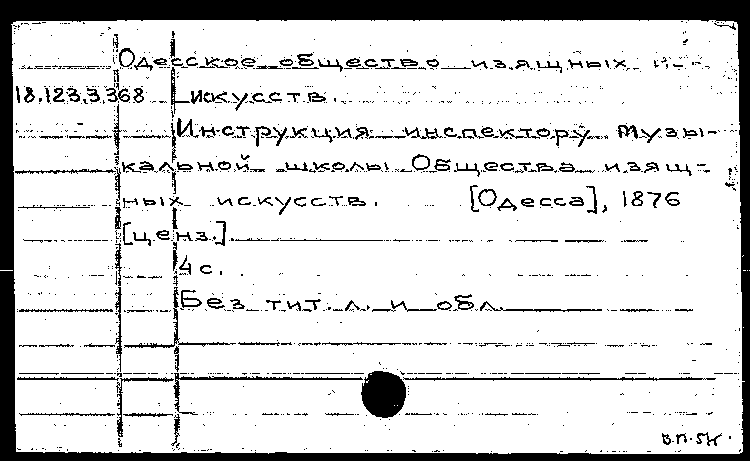 Одесское общество изящных и-
18.123.3.368 искусств.
Инструкция инспектору музы-
кальной школы Общества изящ-
ных искусств. [Одесса], 1876
[ценз.].
4 с.
Без тит. л. и обл.